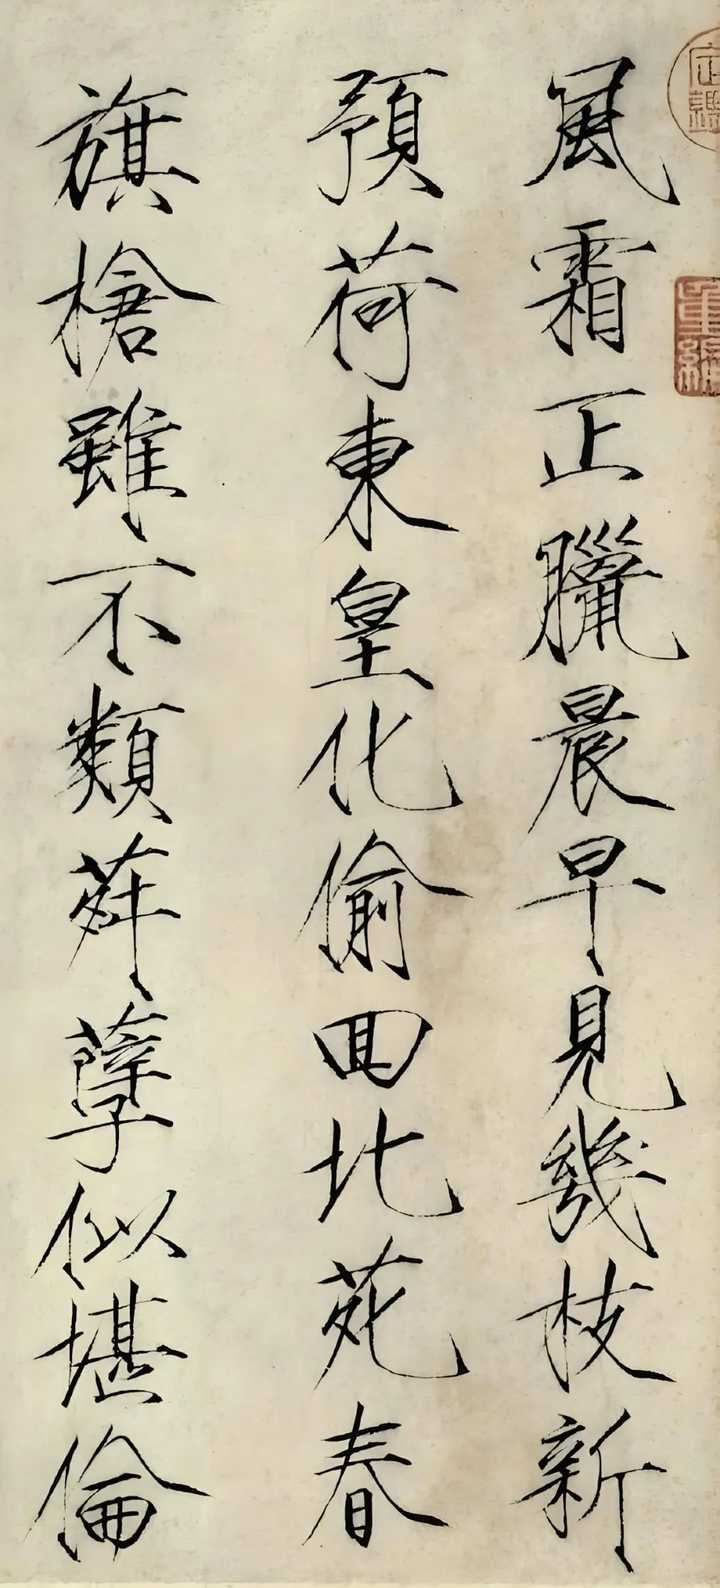 風霜正臘晨早見幾枝新
預荷東皇化偷回北苑春
旗槍雖不類荈孽似堪倫